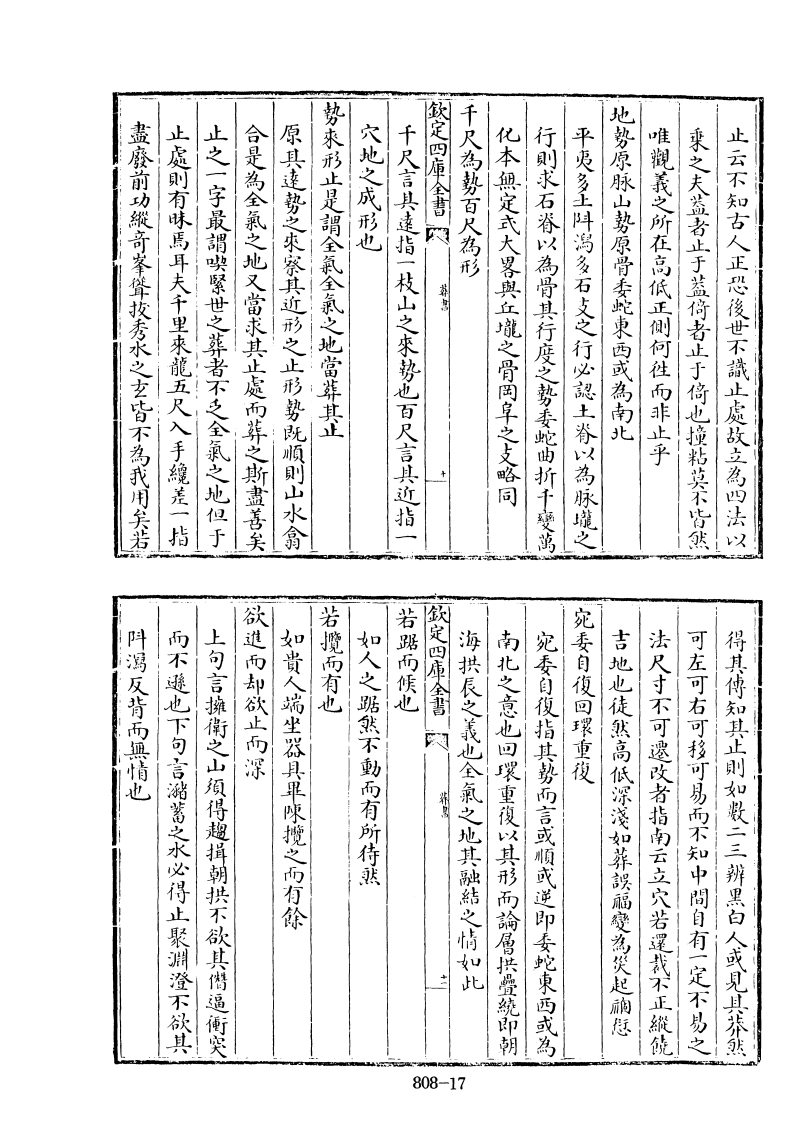 止云不知古人正恐後世不識止處故立為四法以
乘之夫葢者止于葢倚者止于倚也撞粘莫不皆然
唯觀義之所在高低正側何徃而非止乎
地勢原脉山勢原骨委蛇東西或為南北
平夷多土阧瀉多石支之行必認土脊以為脉壠之
行則求石脊以為骨其行度之勢委蛇曲折千變萬
化本無定式大畧與丘壠之骨岡阜之支略同
千尺為勢百尺為形
千尺言其遠指一枝山之來勢也百尺言其近指一
穴地之成形也
勢來形止是謂全氣全氣之地當葬其止
原其遠勢之來察其近形之止形勢既順則山水翕
合是為全氣之地又當求其止處而葬之斯盡善矣
止之一字最謂喫緊世之葬者不乏全氣之地但于
止處則有昧焉耳夫千里來龍五尺入手纔差一指
盡廢前功縱奇峯聳拔秀水之玄皆不為我用矣若
欽定四庫全書
葬書
十
得其傳知其止則如數二三辨黑白人或見其莽然
可左可右可移可易而不知中間自有一定不易之
法尺寸不可遷改者指南云立穴若還裁不正縱饒
吉地也徒然高低深淺如葬誤福變為災起禍愆
宛委自復回環重復
宛委自復指其勢而言或順或逆即委蛇東西或為
南北之意也回環重復以其形而論層拱疊繞即朝
海拱辰之義也全氣之地其融結之情如此
欽定四庫全書
葬書
十一
若踞而候也
如人之踞然不動而有所待然
若攬而有也
如貴人端坐器具畢陳攬之而有餘
欲進而却欲止而深
上句言擁衛之山須得趨揖朝拱不欲其僭逼衝突
而不遜也下句言瀦蓄之水必得止聚淵澄不欲其
阧瀉反背而無情也
808-17